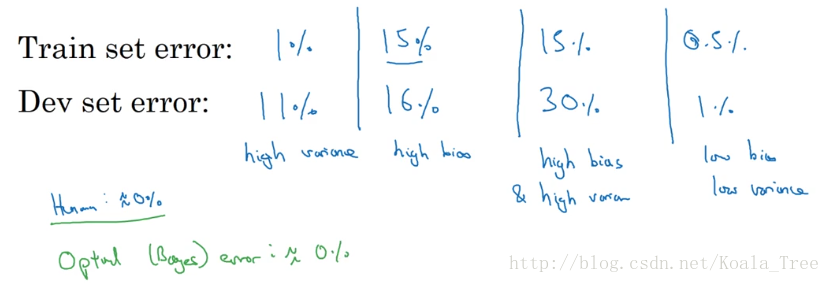 Train set error: 1% 15% 15% 0.5%
Dev set error: 11% 16% 30% 1%
high variance high bias high bias low bias
& high varian low variance
Human: ≈0%
Optml (Bayes) error: ≈ 0%
http://blog.csdn.net/Koala_Tree